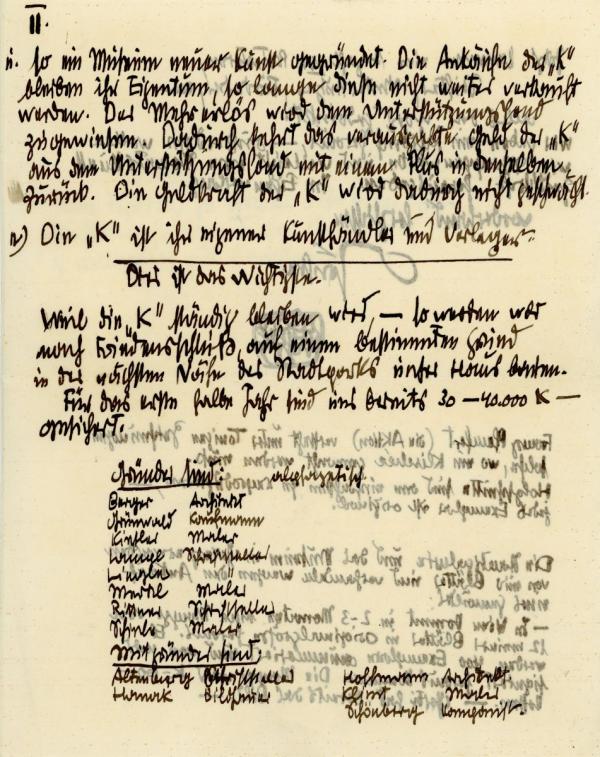 II.
so ein Museum neuer Kunst gegründet. Die Ankäufe der „K"
bleiben ihr Eigentum, so lange diese nicht weiter verkauft
werden. Der Mehrerlös wird dem Unterstützungsfond
zugewiesen. Dadurch kehrt das verausgabte Geld der „K"
aus dem Unterstützungsfond mit einem Plus in denselben
zurück. Die Geldkraft der „K" wird dadurch nicht geschwächt.
e) Die „K" ist ihr eigener Kunsthändler und Verleger.
Dies ist das Wichtigste.
Weil die „K" ständig bleiben wird, — so werden wir
nach Friedensschluß, auf einem bestimmten Grund
in der nächsten Nähe des Stadtparks unser Haus bauen.
Für das erste halbe Jahr sind uns bereits 30 — 40.000 K —
gesichert.
Gründer sind: alphabetisch.
Berger Architekt
Grünwald Kaufmann
Kistler Maler
Schriftsteller
Mertil Maler
Schriftsteller
Schiele Maler
Mitgründer sind:
Altenberg Schriftsteller Hoffmann Architekt
Hanak Bildhauer Klimt Maler
Schönberg Komponist.